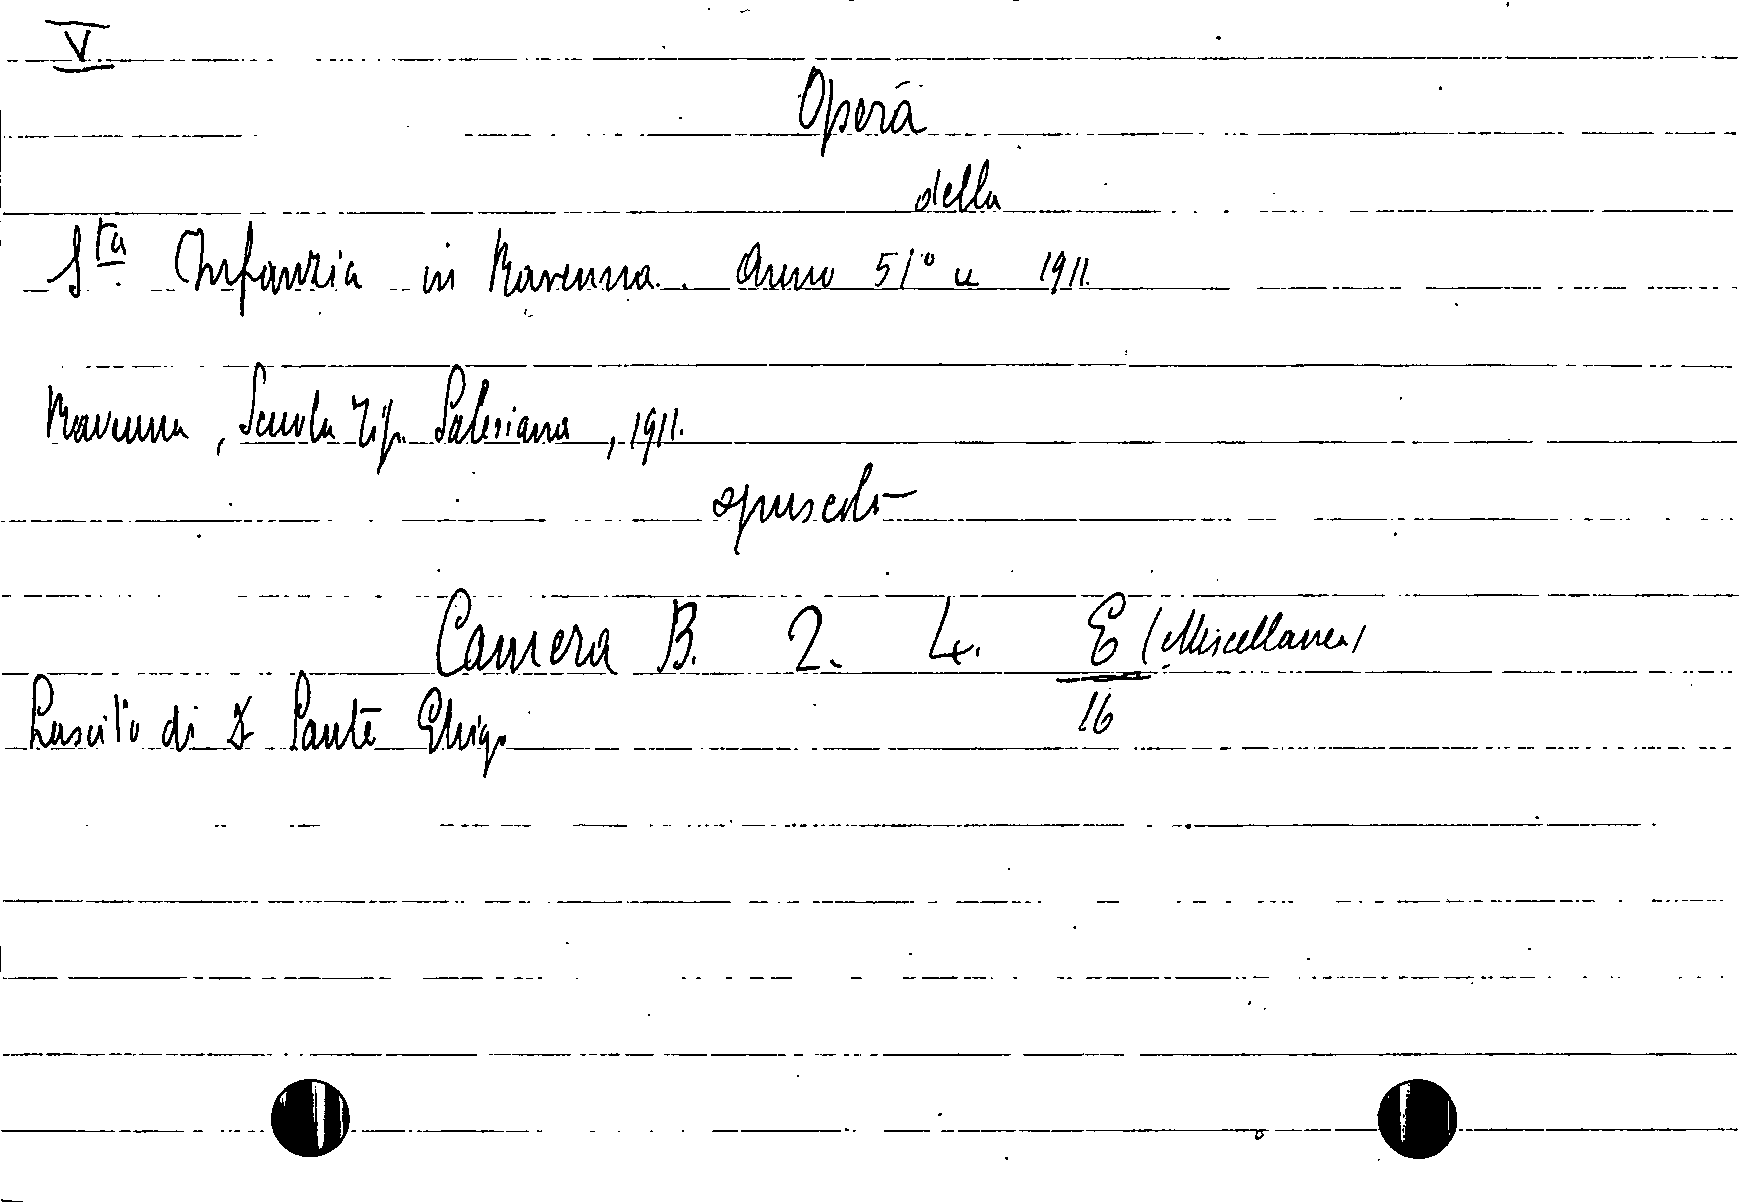 V
Opera
della
S.ta Infanzia in Ravenna. Anno 51° 1911.
Ravenna, Scuola Tip. Salesiana, 1911.
opuscolo
Camera B. 2. 4. E (Miscellanea)
16
Lascito di D Sante Ghig.